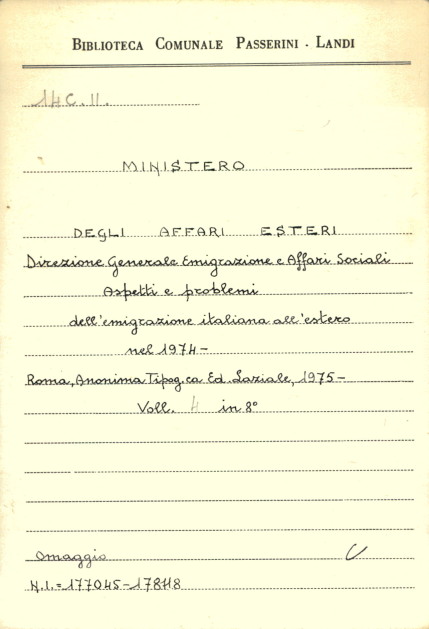 BIBLIOTECA COMUNALE PASSERINI - LANDI
14C.II.
MINISTERO
DEGLI AFFARI ESTERI
Direzione Generale Emigrazione e Affari Sociali
Aspetti e problemi
dell'emigrazione italiana all'estero
nel 1974-
Roma, Anonima Tipog.ca Ed. Laziale, 1975-
Voll. 4 in 8°
Omaggio
N.I.=177045-178118